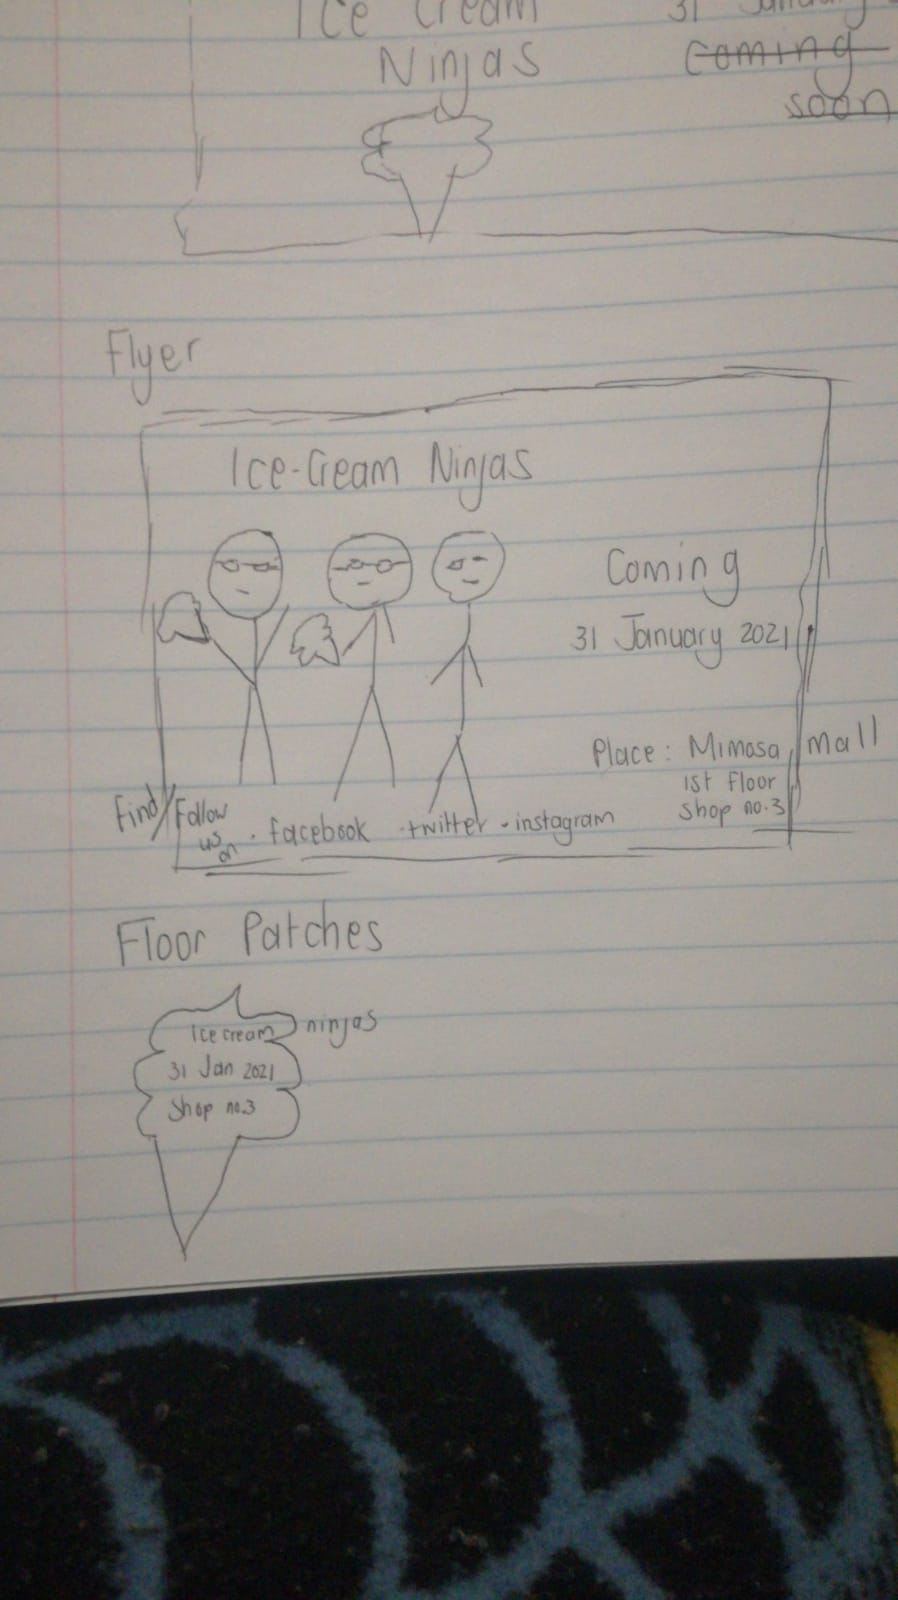 Ice Cream
Ninjas
31 January
Coming
soon
Flyer
Ice-Cream Ninjas
Coming
31 January 2021
Place: Mimosa Mall
1st Floor
Shop no.3
Find/Follow
us
on
· facebook · twitter · instagram
Floor Patches
Ice cream ninjas
31 Jan 2021
Shop no.3